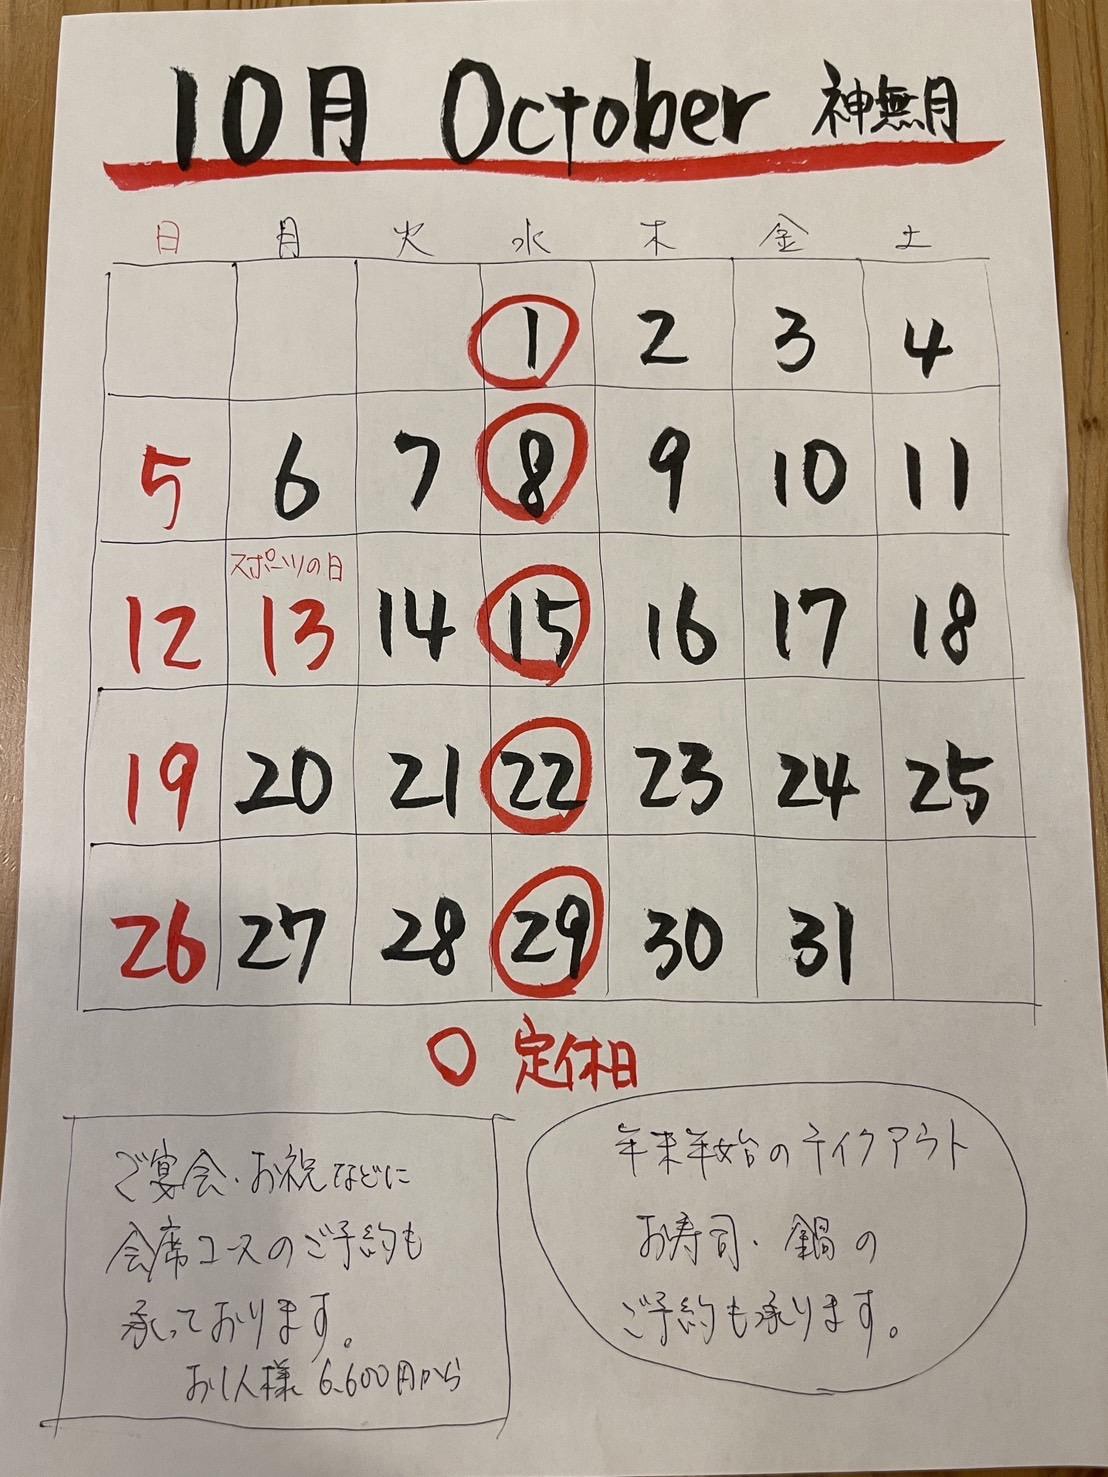 10月 October 神無月
日 月 火 水 木 金 土
1 2 3 4
5 6 7 8 9 10 11
スポーツの日
12 13 14 15 16 17 18
19 20 21 22 23 24 25
26 27 28 29 30 31
○ 定休日
ご宴会・お祝などに
会席コースのご予約も
承っております。
お1人様 6,600円から
年末年始のテイクアウト
お寿司・鍋の
ご予約も承ります。